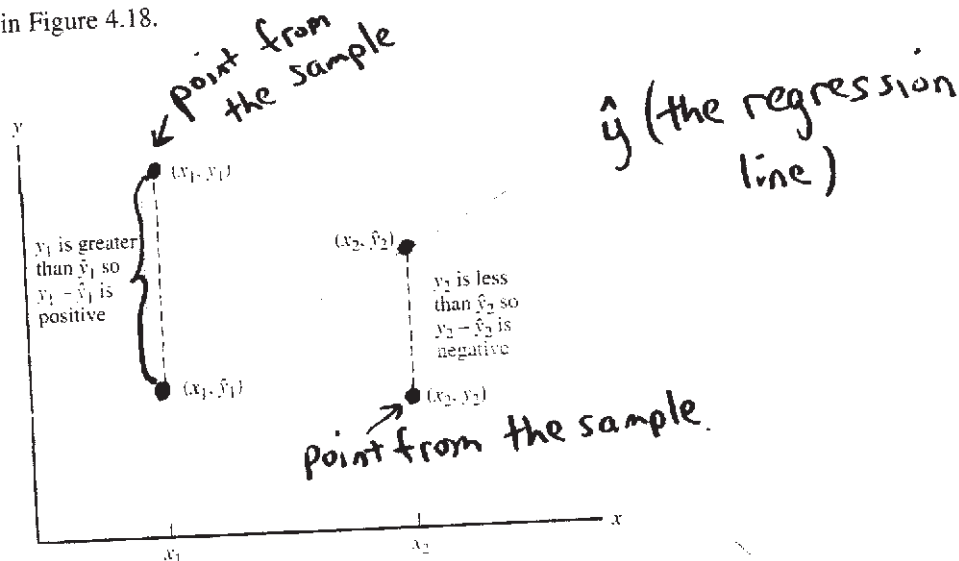 in Figure 4.18.
point from
the sample
ŷ (the regression
line)
y
(x₁, y₁)
y₁ is greater
than ŷ₁ so
y₁ – ŷ₁ is
positive
(x₂, ŷ₂)
y₂ is less
than ŷ₂ so
y₂ – ŷ₂ is
negative
(x₁, ŷ₁)
(x₂, y₂)
point from the sample.
x
x₁
x₂